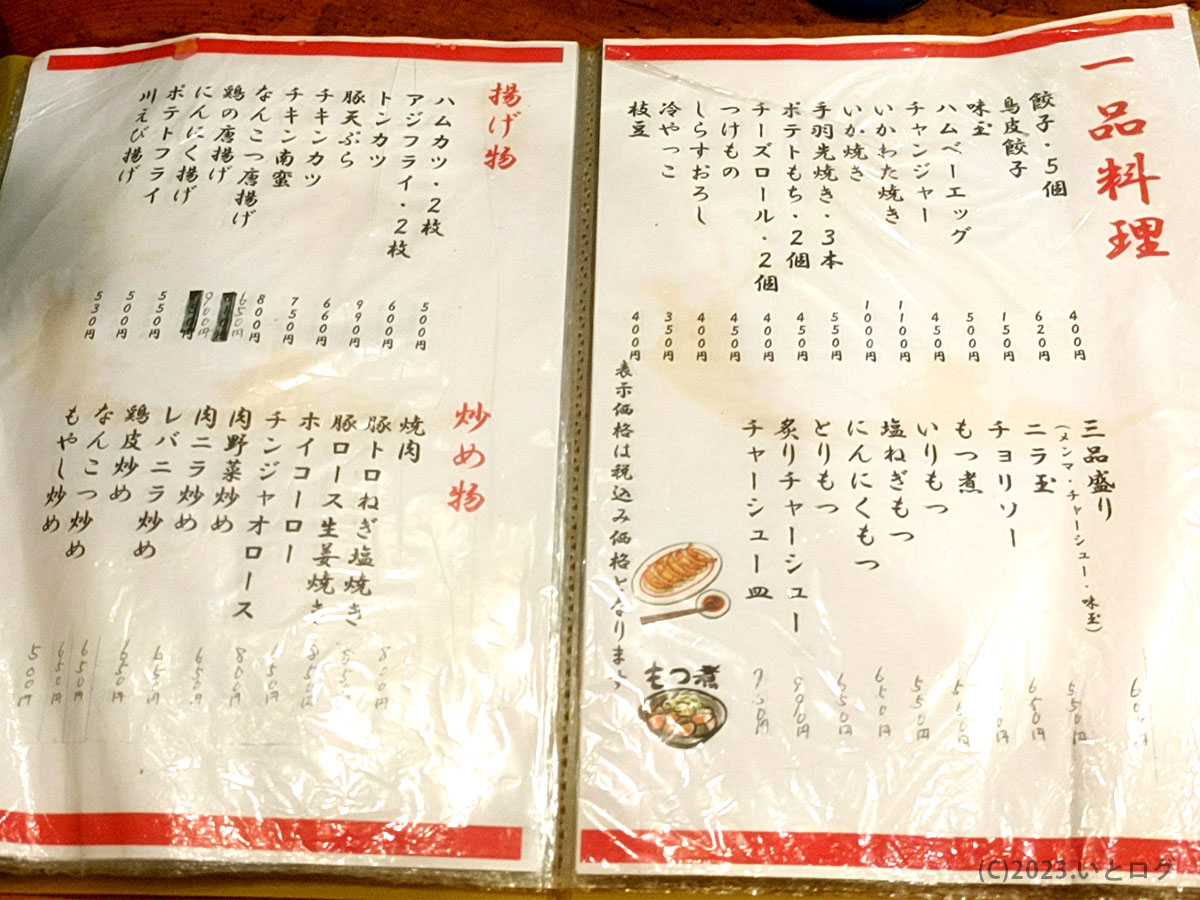 一品料理
餃子・5個 400円
鳥皮餃子 620円
味玉 150円
ハムベーエッグ 500円
チャンジャー 450円
いかわた焼き 1100円
いか焼き 1000円
手羽先焼き・3本 550円
ポテトもち・2個 450円
チーズロール・2個 400円
つけもの 450円
しらすおろし 400円
冷やっこ 350円
枝豆 400円
三品盛り
(メンマ・チャーシュー・味玉)
ニラ玉 550円
チョリソー 650円
もつ煮
いりもつ
塩ねぎもつ 550円
にんにくもつ 650円
とりもつ 650円
炙りチャーシュー 990円
チャーシュー皿
表示価格は税込み価格となります
もつ煮
揚げ物
ハムカツ・2枚 500円
アジフライ・2枚 600円
トンカツ 990円
豚天ぷら 660円
チキンカツ 750円
チキン南蛮 800円
なんこつ唐揚げ 650円
鶏の唐揚げ 900円
にんにく揚げ 550円
ポテトフライ 500円
川えび揚げ 530円
炒め物
焼肉
豚トロねぎ塩焼き
豚ロース生姜焼き
ホイコーロー
チンジャオロース 800円
肉野菜炒め
肉ニラ炒め 650円
レバニラ炒め 650円
鶏皮炒め 650円
なんこつ炒め 650円
もやし炒め 500円
(C)2023.いとログ